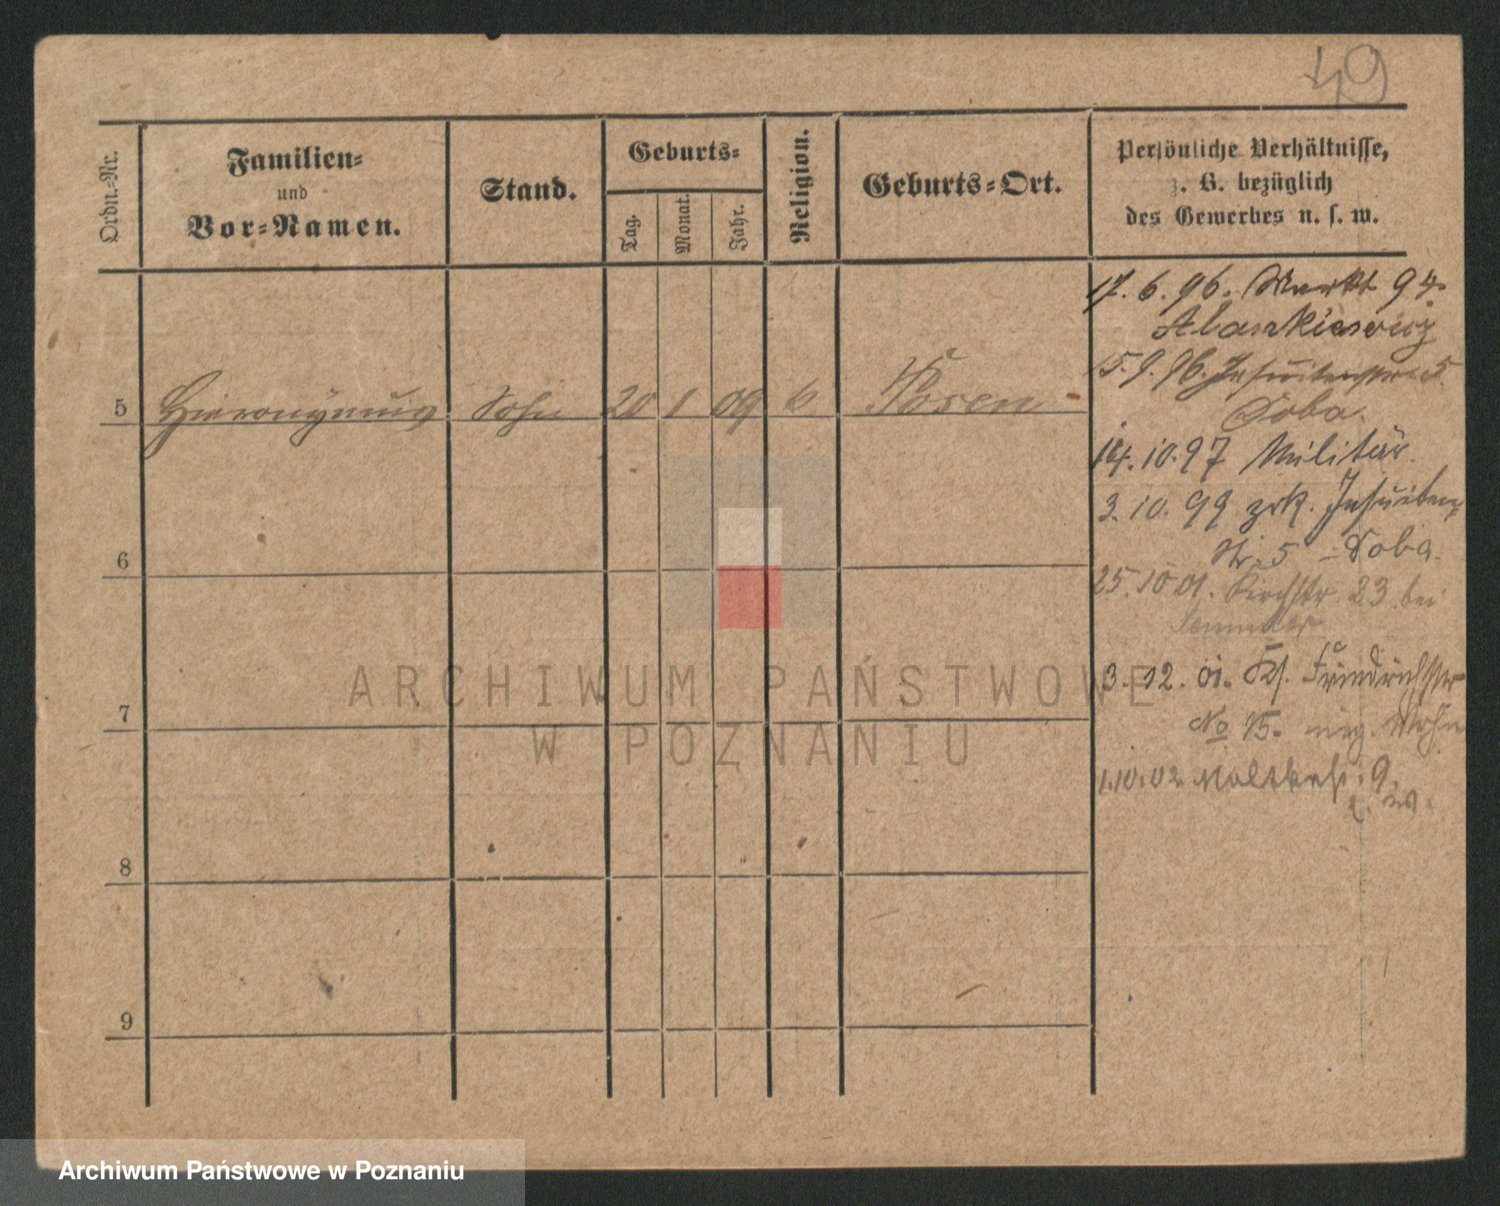 49
Ordn.-Nr.
Familien-
und
Vor-Namen.
Stand.
Geburts-
Tag.
Monat.
Jahr.
Religion.
Geburts-Ort.
Persönliche Verhältnisse,
z. B. bezüglich
des Gewerbes u. s. w.
17. 6. 96. Markt 94.
15. 9. 96. Jesuitenstr. 5
Soba.
5 Hieronymus Sohn 20 1 09 k Posen
14. 10. 97 Militär.
3. 10. 99 zrk. Jesuiten
str. 5 - Soba.
6
25. 10 01. Kirchstr 23 bei
3. 12. 01. Friedrichstr
No 15.
7
1. 10. 02 Moltkest. 9.
8
9
ARCHIWUM PAŃSTWOWE
W POZNANIU
Archiwum Państwowe w Poznaniu